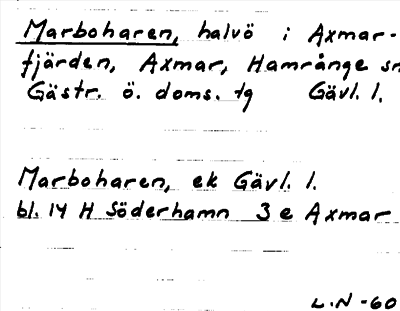 Marboharen, halvö i Axmar-
fjärden, Axmar, Hamrånge sn
Gästr. ö. doms. tg Gävl. l.
Marboharen, ek Gävl. l.
bl. 14 H Söderhamn 3 e Axmar
L.N -60